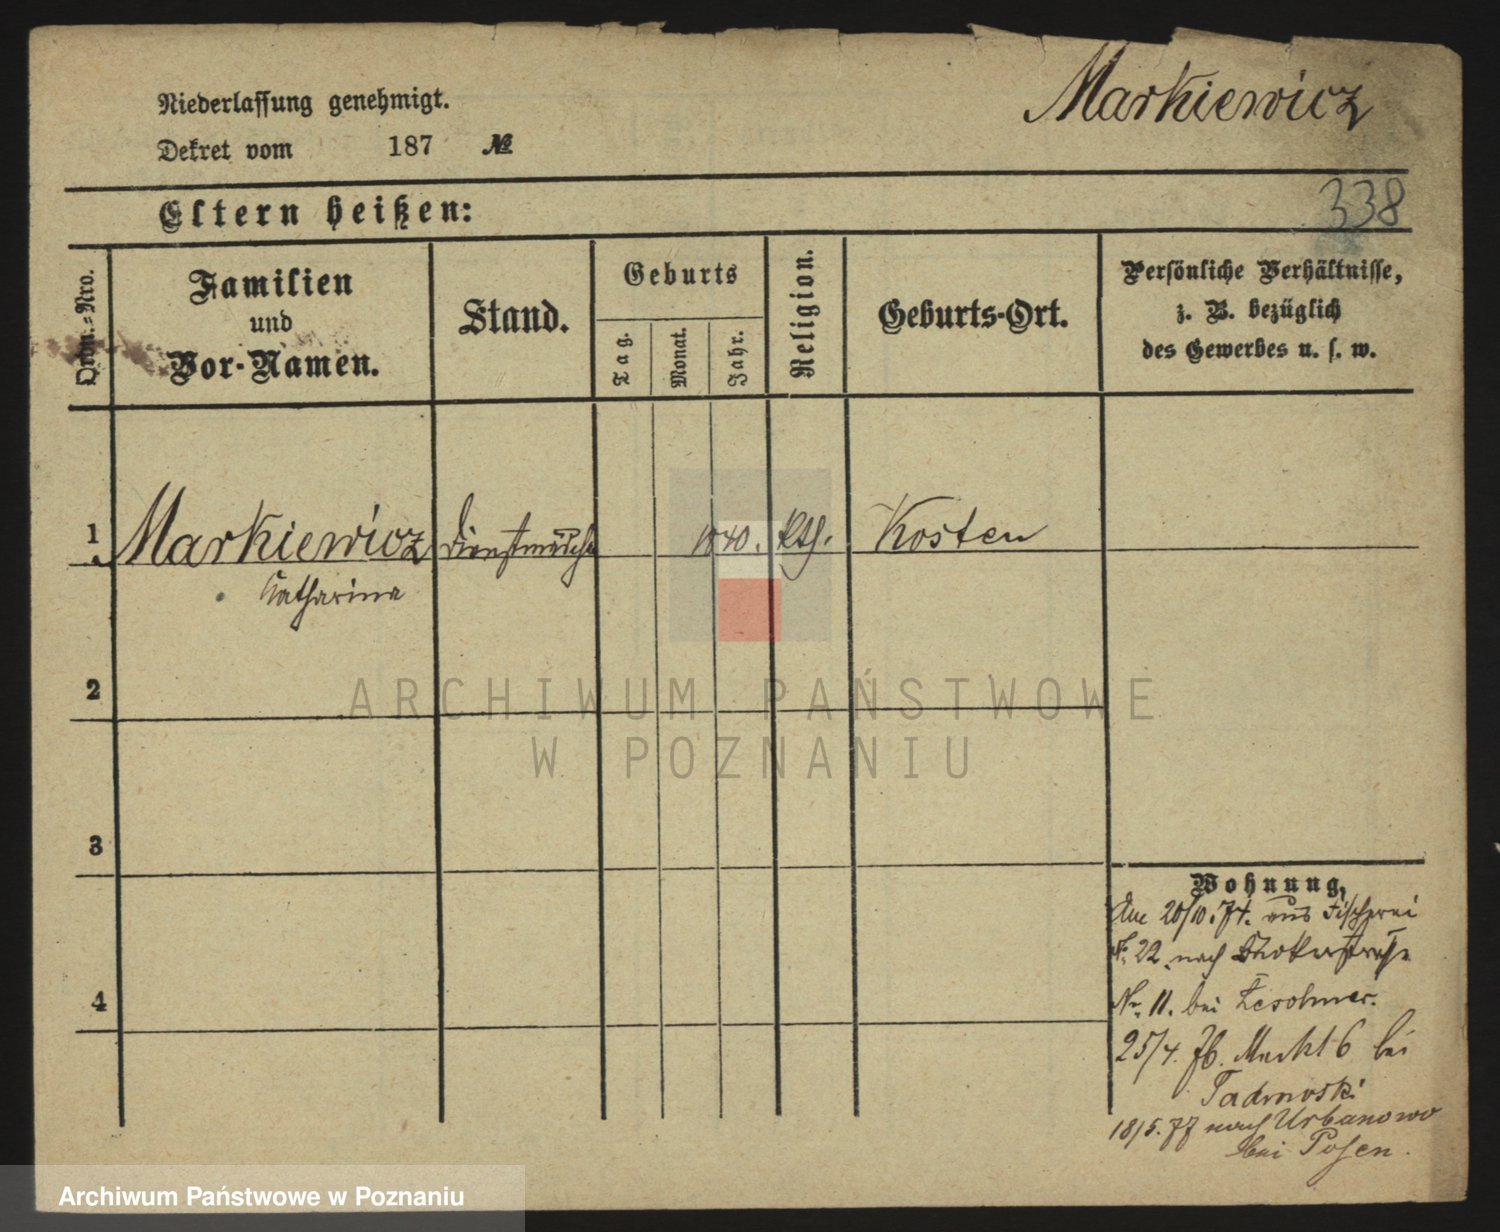 Niederlassung genehmigt.
Markiewicz
Dekret vom 187 №
338
Eltern heißen:
Ordn.-Nro.
Familien
und
Vor-Namen.
Stand.
Geburts
Tag.
Monat.
Jahr.
Religion.
Geburts-Ort.
Persönliche Verhältnisse,
z. B. bezüglich
des Gewerbes u. s. w.
1 Markiewicz 1840. Kth. Kosten
Catharina
2
ARCHIWUM PAŃSTWOWE
W POZNANIU
3
Wohnung,
20/10.74. aus Fischerei
22. nach
4
Nr. 11. bei
25/4. 76. Markt 6 bei
18/5. 77 nach Urbanowo
bei Posen.
Archiwum Państwowe w Poznaniu